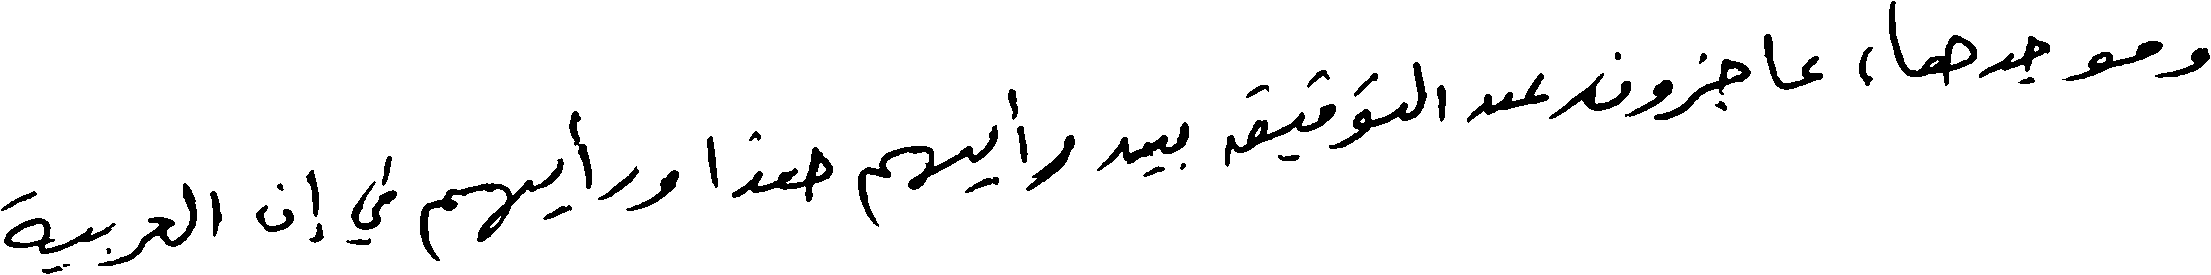 وموجدها، عاجزون عن التوفيق بين رأيهم هذا ورأيهم في إن العربية